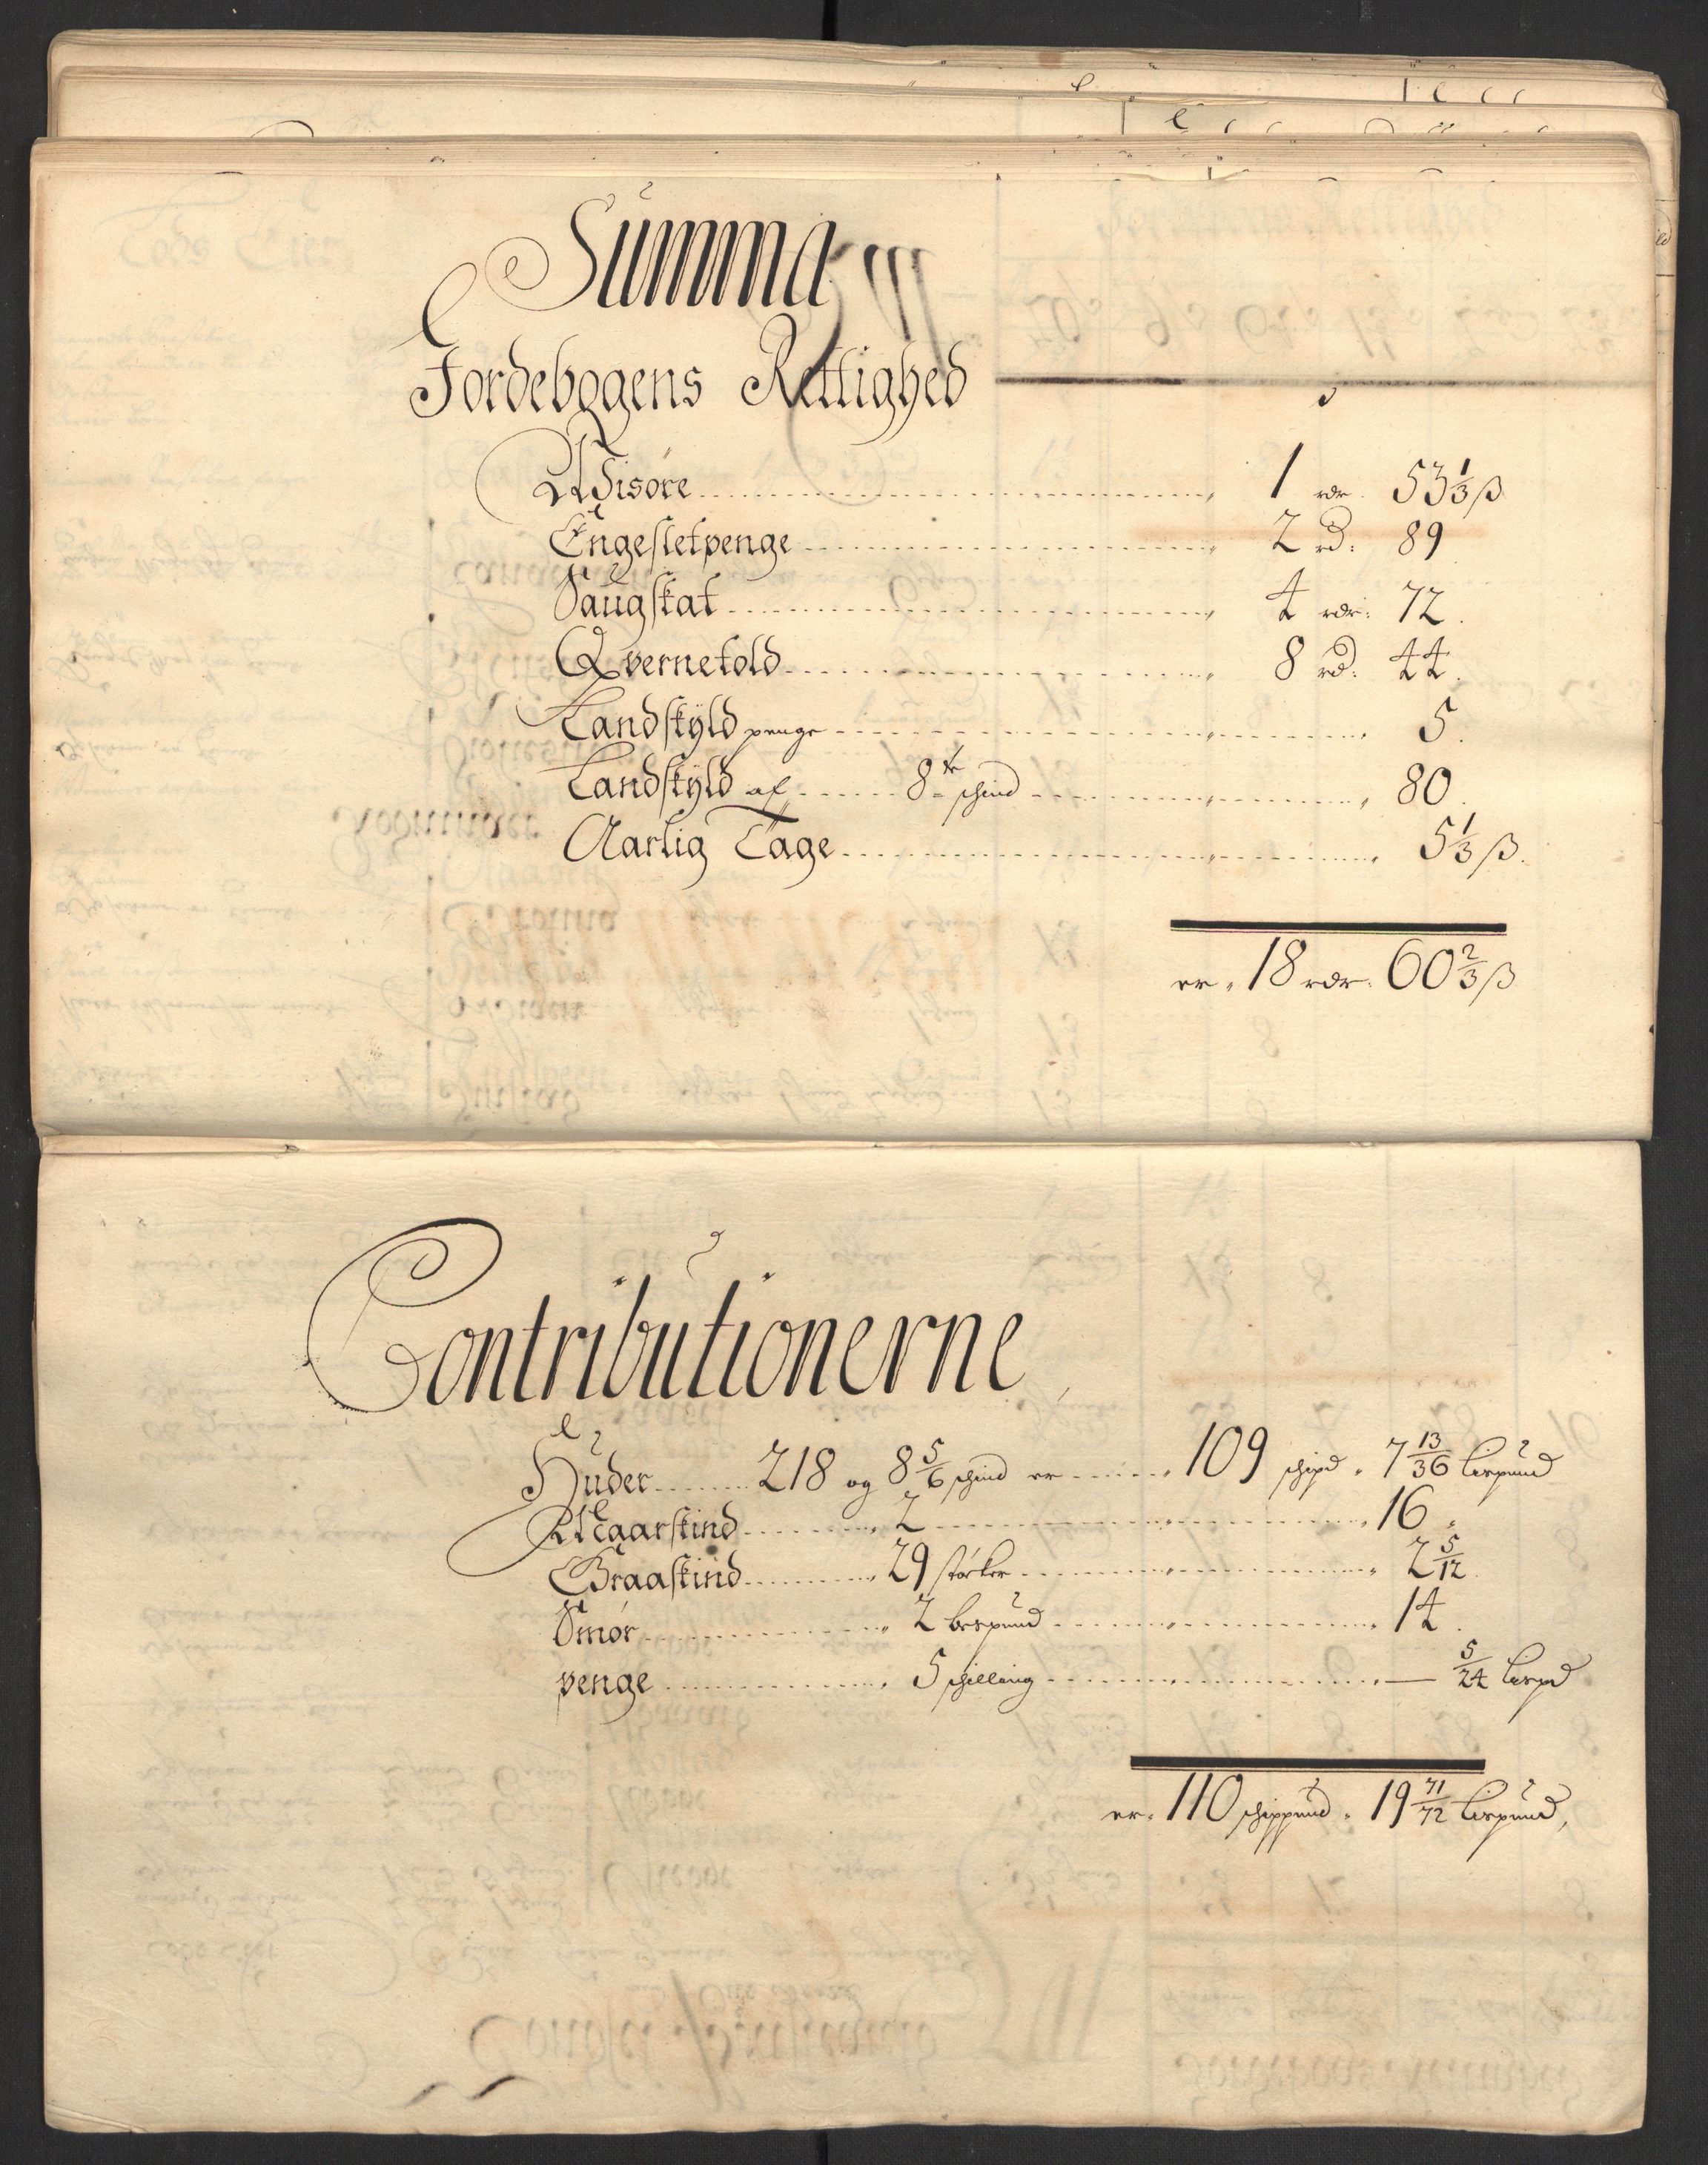 Summa
Jordebogens Rettighed
Wisøre 1 rdr. 53 1/3 ß
Engesletpenge 2 rd: 89
Saugskat 4 rdr: 72.
Qvernetold 8 rd: 44.
Landskÿld penge 5.
Landskÿld af 8 schind 80.
Aarlig Tage 5 1/3 ß.
er. 18 rdr: 60 2/3 ß
Contributionerne
Huder 218 og 8 5/6 schind er 109 schpd. 7 13/36 lispund
Maarskind 2 16.
Graaskind 29 stócker 2 5/12.
Smør 2 bespund 14.
penge 5 schilling — 5/24 lispd
er. 110 schippund. 19 71/72 lispund,